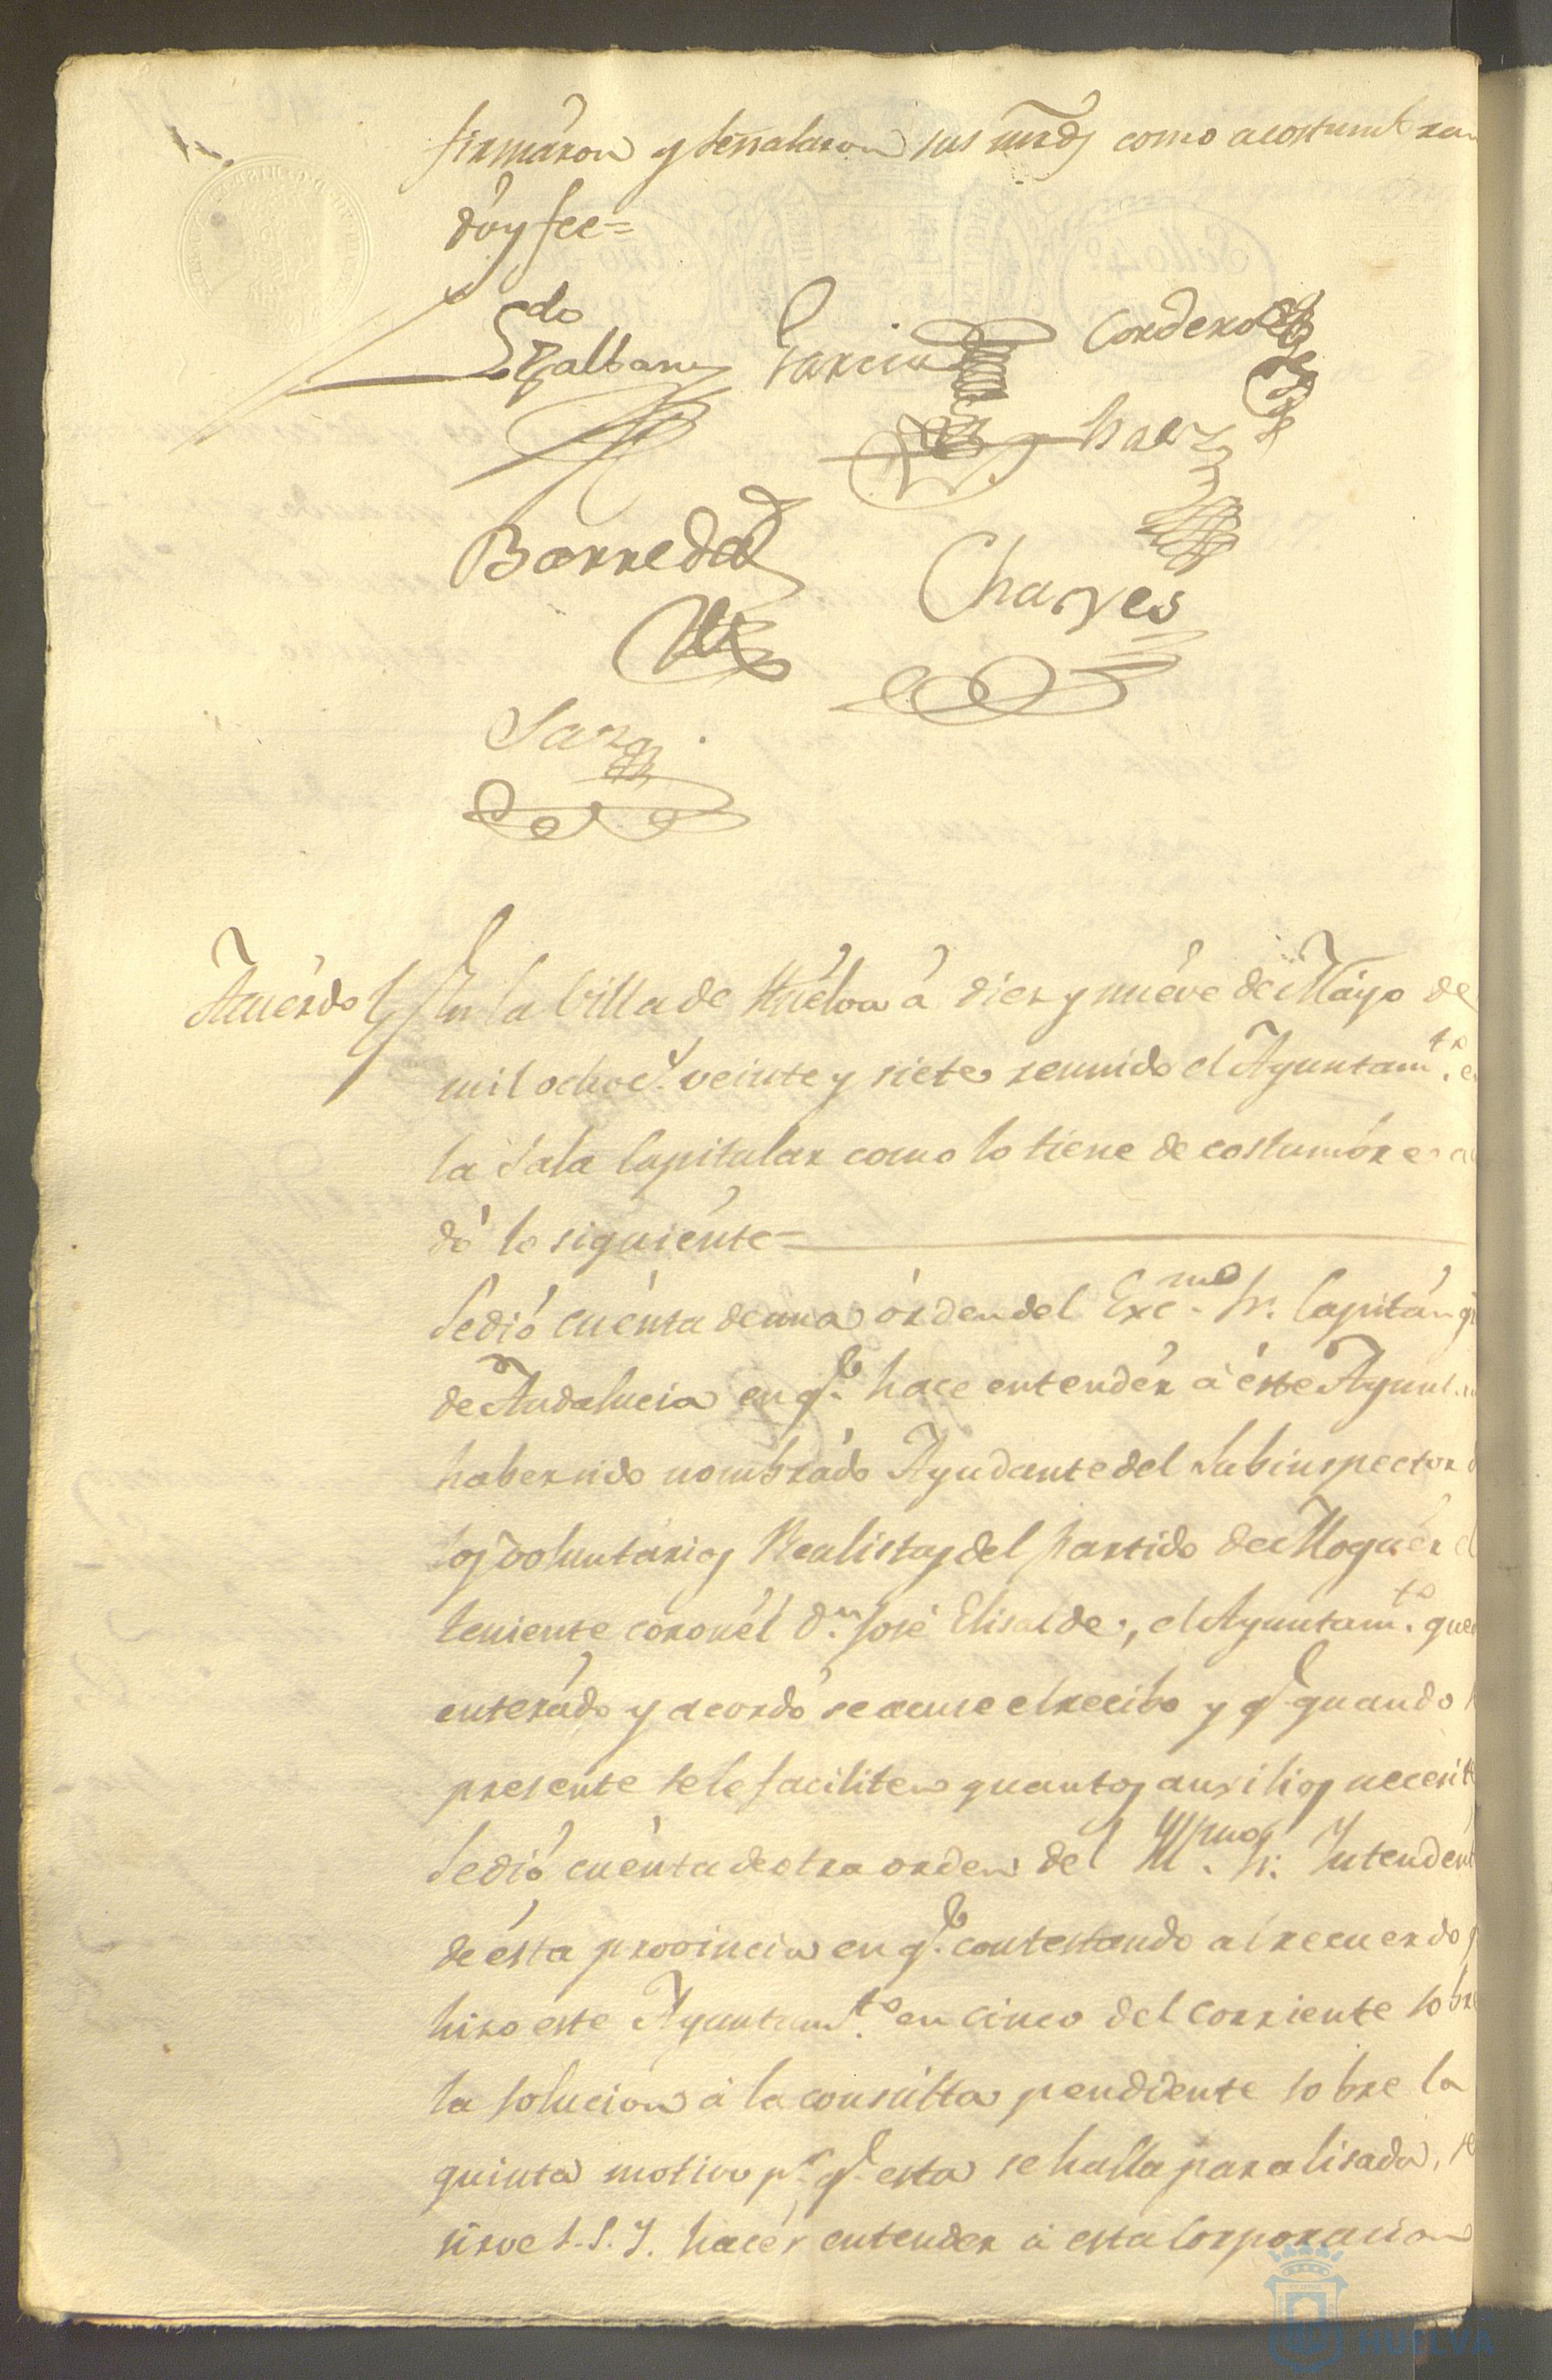 firmáron y señalaron sus mrds como acostumbran
dóy fee=
Ldo
Garcia
Cordero
Barreda
Charves
Acuérdo En la Villa de Huélva á diez y nuéve de Máyo de
mil ochocs. veinte y siete reunido el Ayuntamto. en
la Sala Capitular como lo tiene de costumbre
dó lo siguiénte=
Se dió cuénta de una órden del Excmo. Sr. Capitán
de Andalucia en qe. hace entendér á éste Ayunt
haber sido nombrádo Ayudante del Subinspector
los voluntários Realistas del partido de Moguér
teniente coronél Dn. José Elisalde, el Ayuntamto. que
enterádo y acordó se acuse el recibo y q. quando
presente se le faciliten quantos ausilios necesit
Se dió cuénta de otra orden del Illmo. Sr. Intendent
de ésta provincia en qe. contestando al recuerdo
hizo este Ayuntamto. en cinco del corriente sobre
la solucion á la consulta pendiente sobre la
quinta motivo pr. q. esta se halla paralisada, se
sirve S.S.Y. hacér entender á esta Corporacion
HUELVA